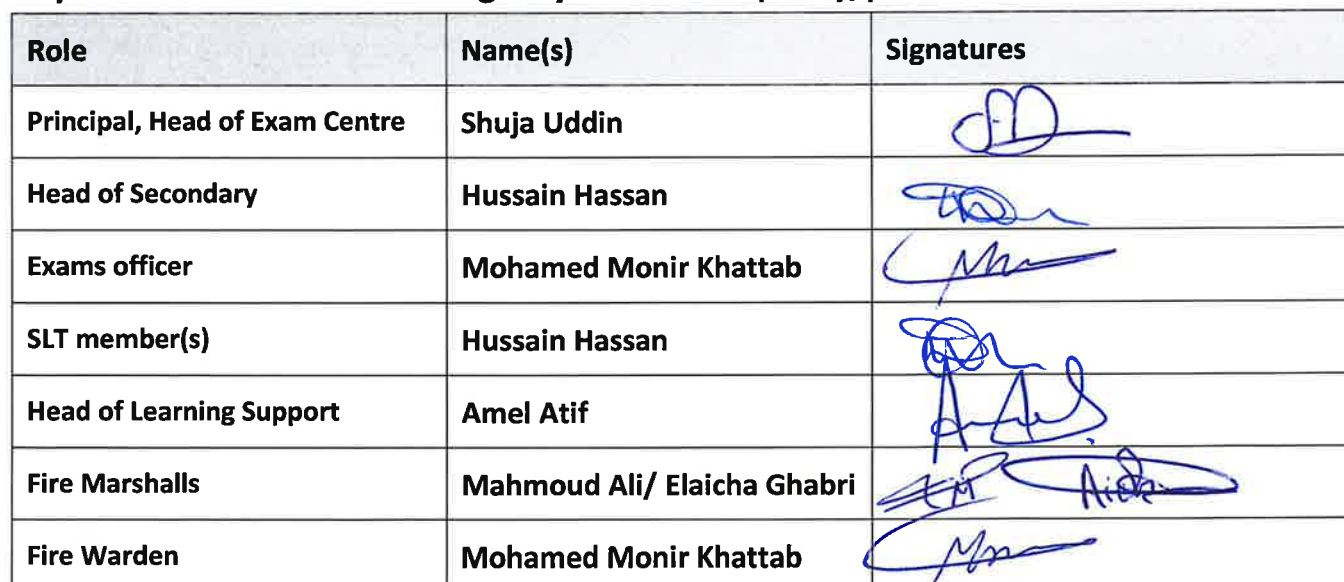 Role Name(s) Signatures
Principal, Head of Exam Centre Shuja Uddin
Head of Secondary Hussain Hassan
Exams officer Mohamed Monir Khattab
SLT member(s) Hussain Hassan
Head of Learning Support Amel Atif
Fire Marshalls Mahmoud Ali/ Elaicha Ghabri
Fire Warden Mohamed Monir Khattab